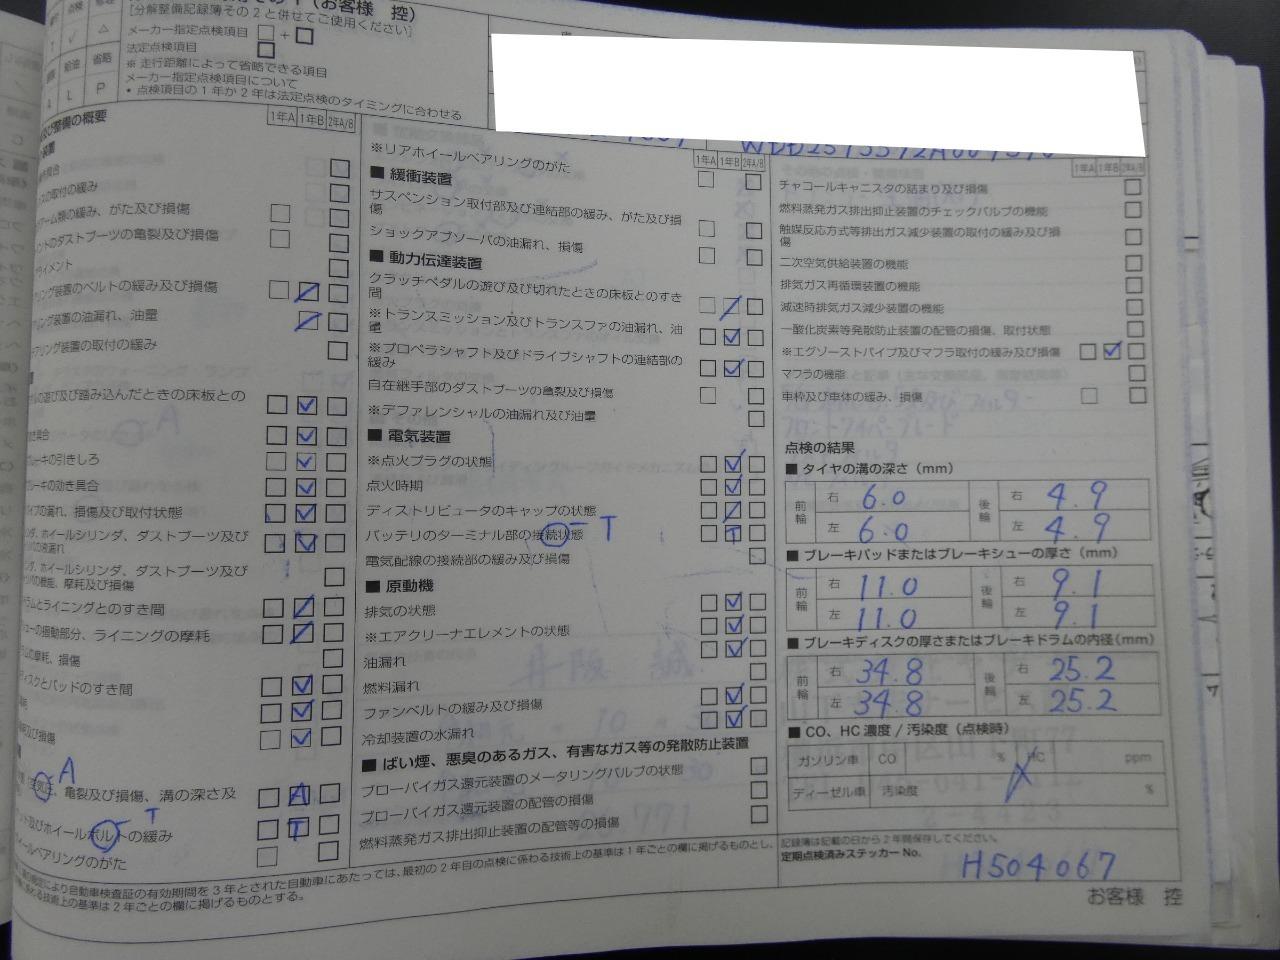 点検
（お客様 控）
[分解整備記録簿その2と併せてご使用ください]
メーカー指定点検項目 □ + □
法定点検項目 □
※ 走行距離によって省略できる項目
メーカー指定点検項目について
・点検項目の1年か2年は法定点検のタイミングに合わせる
給油 省略
A L P
及び整備の概要
1年A 1年B 2年A/B
装置
の取付の緩み
アーム類の緩み、がた及び損傷
ントのダストブーツの亀裂及び損傷
ライメント
リング装置のベルトの緩み及び損傷
リング装置の油漏れ、油量
アリング装置の取付の緩み
ルの遊び及び踏み込んだときの床板との
き具合
ブレーキの引きしろ
ブレーキの効き具合
イプの漏れ、損傷及び取付状態
ダ、ホイールシリンダ、ダストブーツ及び
の液漏れ
ダ、ホイールシリンダ、ダストブーツ及び
の機能、摩耗及び損傷
ラムとライニングとのすき間
シューの摺動部分、ライニングの摩耗
ムの摩耗、損傷
ディスクとパッドのすき間
摩耗
耗及び損傷
A
空気圧、亀裂及び損傷、溝の深さ及 A
T
ト及びホイールボルトの緩み T
イールベアリングのがた
1年A 1年B 2年A/B
※リアホイールベアリングのがた
■ 緩衝装置
サスペンション取付部及び連結部の緩み、がた及び損
傷
ショックアブソーバの油漏れ、損傷
■ 動力伝達装置
クラッチペダルの遊び及び切れたときの床板とのすき
間
※トランスミッション及びトランスファの油漏れ、油
量
※プロペラシャフト及びドライブシャフトの連結部の
緩み
自在継手部のダストブーツの亀裂及び損傷
※デファレンシャルの油漏れ及び油量
■ 電気装置
※点火プラグの状態
点火時期
ディストリビュータのキャップの状態
バッテリのターミナル部の接続状態 T T
電気配線の接続部の緩み及び損傷
■ 原動機
排気の状態
※エアクリーナエレメントの状態
油漏れ
燃料漏れ
ファンベルトの緩み及び損傷
冷却装置の水漏れ
■ ばい煙、悪臭のあるガス、有害なガス等の発散防止装置
ブローバイガス還元装置のメータリングバルブの状態
ブローバイガス還元装置の配管の損傷
燃料蒸発ガス排出抑止装置の配管等の損傷
1年A 1年B 2年A/B
チャコールキャニスタの詰まり及び損傷
燃料蒸発ガス排出抑止装置のチェックバルブの機能
触媒反応方式等排出ガス減少装置の取付の緩み及び損
傷
二次空気供給装置の機能
排気ガス再循環装置の機能
減速時排気ガス減少装置の機能
一酸化炭素等発散防止装置の配管の損傷、取付状態
※エグゾーストパイプ及びマフラ取付の緩み及び損傷
マフラの機能
車枠及び車体の緩み、損傷
点検の結果
■ タイヤの溝の深さ（mm）
前輪 右 6.0 後輪 右 4.9
左 6.0 左 4.9
■ ブレーキパッドまたはブレーキシューの厚さ（mm）
前輪 右 11.0 後輪 右 9.1
左 11.0 左 9.1
■ ブレーキディスクの厚さまたはブレーキドラムの内径（mm）
前輪 右 34.8 後輪 右 25.2
左 34.8 左 25.2
■ CO、HC 濃度 / 汚染度（点検時）
ガソリン車 CO % HC ppm
ディーゼル車 汚染度 %
記録簿は記載の日から2年間保存してください。
定期点検済みステッカー No. H504067
の規定により自動車検査証の有効期間を3年とされた自動車にあたっては、最初の2年目の点検に係わる技術上の基準は1年ごとの欄に掲げるものとし、
に係わる技術上の基準は2年ごとの欄に掲げるものとする。
お客様 控